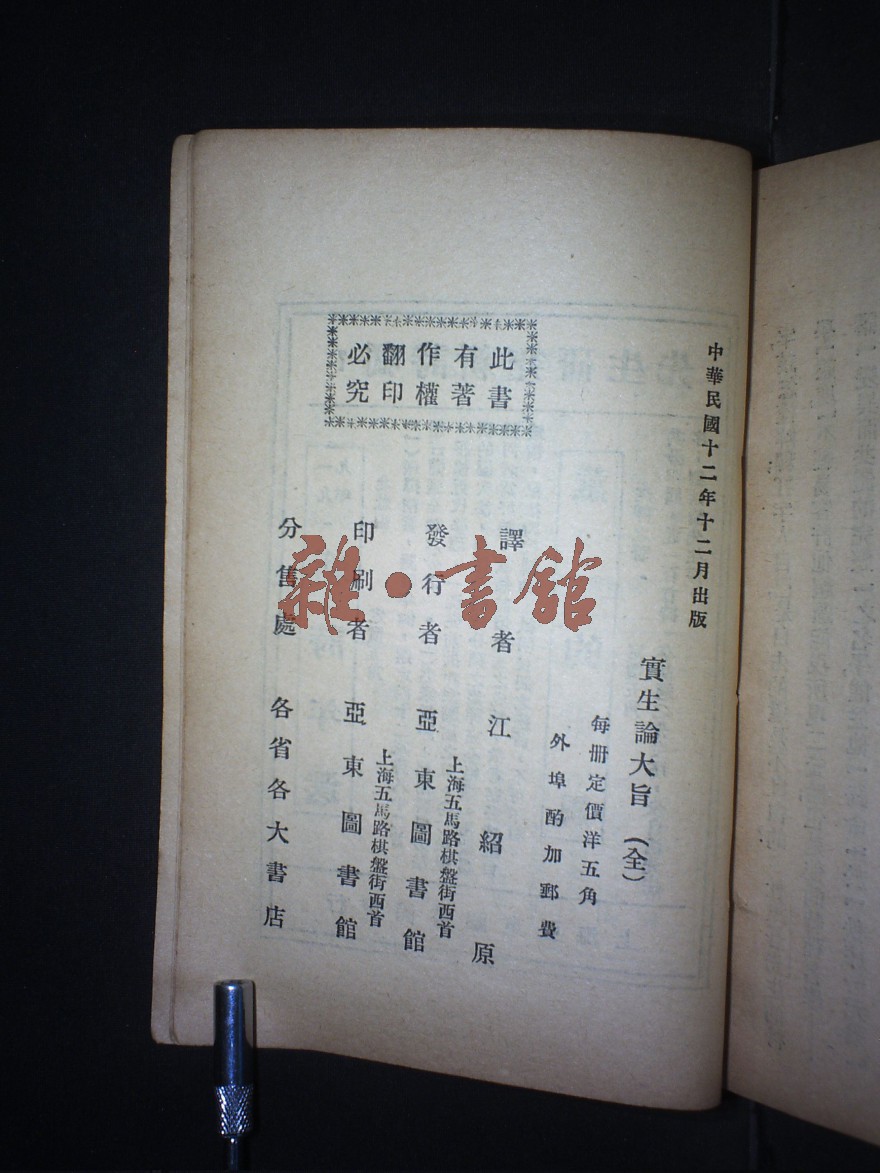 中華民國十二年十二月出版
實生論大旨(全)
每冊定價洋五角
外埠酌加郵費
此書
有著
作權
翻印
必究
譯者江紹原
上海五馬路棋盤街西首
發行者亞東圖書館
上海五馬路棋盤街西首
印刷者亞東圖書館
分售處各省各大書店
雜·書館